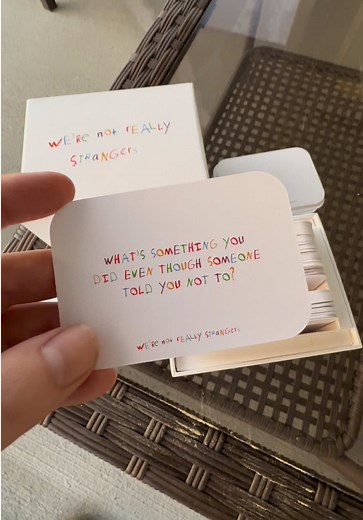 WE'Re not REALLY
STRANGERS
WHAT'S SOMETHING YOU
DID EVEN THOUGH SOMEONE
TOLD YOU NOT TO?
WE'Re not REALLY STRANGERS